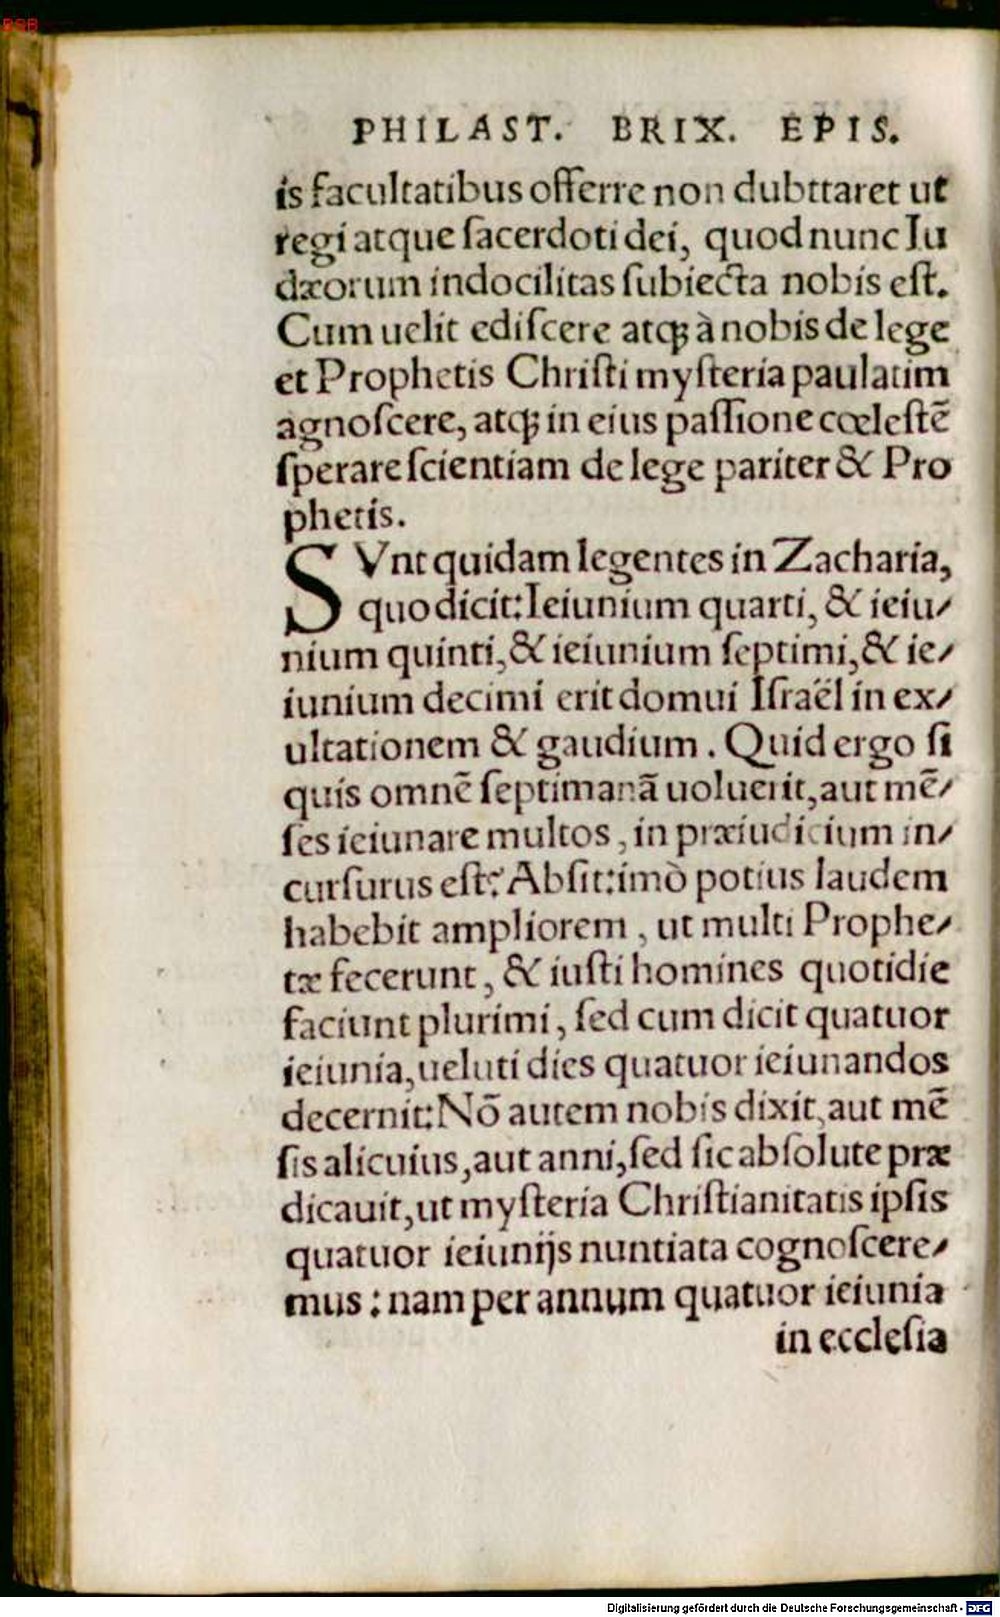 BSB
PHILAST. BRIX. EPIS.
is facultatibus offerre non dubttaret ut
regi atque ſacerdoti dei, quod nunc Iu
dæorum indocilitas ſubiecta nobis eſt.
Cum uelit ediſcere atq; à nobis de lege
et Prophetis Chriſti myſteria paulatim
agnoſcere, atq; in eius paſſione cœleſtē
ſperare ſcientiam de lege pariter & Pro
phetis.
SVnt quidam legentes in Zacharia,
quo dicit: Ieiunium quarti, & ieiu/
nium quinti, & ieiunium ſeptimi, & ie/
iunium decimi erit domui Iſraël in ex/
ultationem & gaudium. Quid ergo ſi
quis omnē ſeptimanā uoluerit, aut mē/
ſes ieiunare multos, in præiudicium in/
curſurus eſt? Abſit: imò potius laudem
habebit ampliorem, ut multi Prophe/
tæ fecerunt, & iuſti homines quotidie
faciunt plurimi, ſed cum dicit quatuor
ieiunia, ueluti dies quatuor ieiunandos
decernit: Nō autem nobis dixit, aut mē
ſis alicuius, aut anni, ſed ſic abſolute præ
dicauit, ut myſteria Chriſtianitatis ipſis
quatuor ieiunijs nuntiata cognoſcere/
mus: nam per annum quatuor ieiunia
in eccleſia
Digitalisierung gefördert durch die Deutsche Forschungsgemeinschaft - DFG